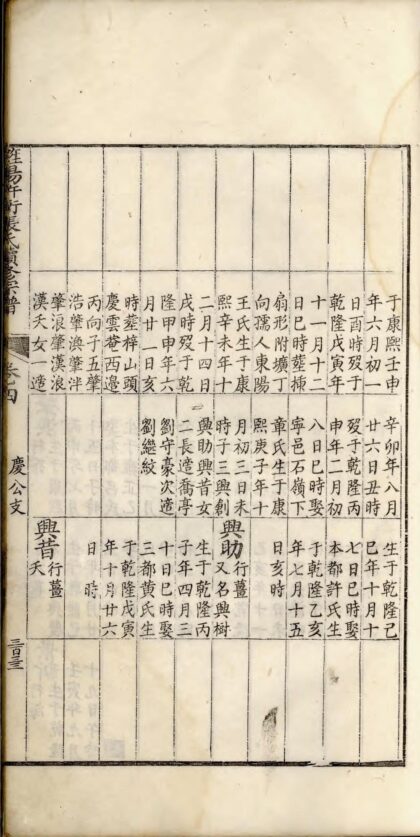 于康熙壬申
年六月初一
日酉時歿于
乾隆戊寅年
十一月十二
日巳時塟棟
扇形附壙丁
向孺人東陽
王氏生于康
熙辛未年十
二月十四日
戌時歿于乾
隆甲申年六
月廿一日亥
時塟梓山頭
慶雲菴西邊
丙向子五肇
浩肇渙肇泮
肇浪肇漢浪
漢夭女一適
辛卯年八月
廿六日丑時
歿于乾隆丙
申年二月初
八日巳時娶
寧邑石嶺下
章氏生于康
熙庚子年十
月初三日未
時子三興創
興助興昔女
二長適喬亭
劉守豪次適
劉繼絞
生于乾隆己
巳年十月十
七日巳時娶
本都許氏生
于乾隆乙亥
年七月十五
日亥時
興助行薑
又名興樹
生于乾隆丙
子年四月三
十日巳時娶
三都黄氏生
于乾隆戊寅
年十月廿六
日 時
興昔行薑
夭
張氏 宗譜 卷四 慶公支